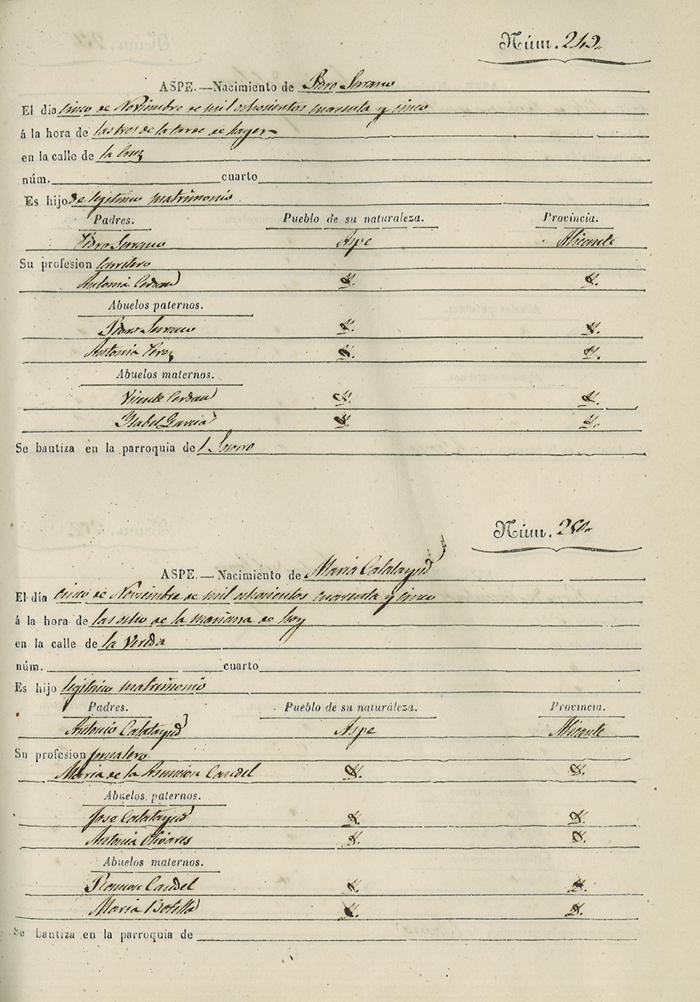 Núm. 249
ASPE.—Nacimiento de Pedro Serrano
El dia cinco de Noviembre de mil ochocientos cuarenta y cinco
á la hora de las tres de la tarde de hayer
en la calle de la Cruz
núm. cuarto
Es hijo de legitimo matrimonio
Padres. Pueblo de su naturaleza. Provincia.
Pedro Serrano Aspe Alicante
Su profesion
Antonia Cerdan Y. Y.
Abuelos paternos.
Pedro Serrano Y. Y.
Antonia Y. Y.
Abuelos maternos.
Vicente Cerdan Y. Y.
Ysabel Garcia Y. Y.
Se bautiza en la parroquia del Socorro
Núm. 250
ASPE.—Nacimiento de Maria Calatayud
El día cinco de Noviembre de mil ochocientos cuarenta y cinco
á la hora de las ocho de la mañana de hoy
en la calle de la Vereda
núm. cuarto
Es hijo legitimo matrimonio
Padres. Pueblo de su naturáleza. Provincia.
Antonio Calatayud Aspe Alicante
Su profesion jornalero
Maria de la Asuncion Candel Y. Y.
Abuelos paternos.
Jose Calatayud Y. Y.
Antonia Olivares Y. Y.
Abuelos maternos.
Ramon Candel Y. Y.
Maria Botella Y. Y.
Se bautiza en la parroquia de